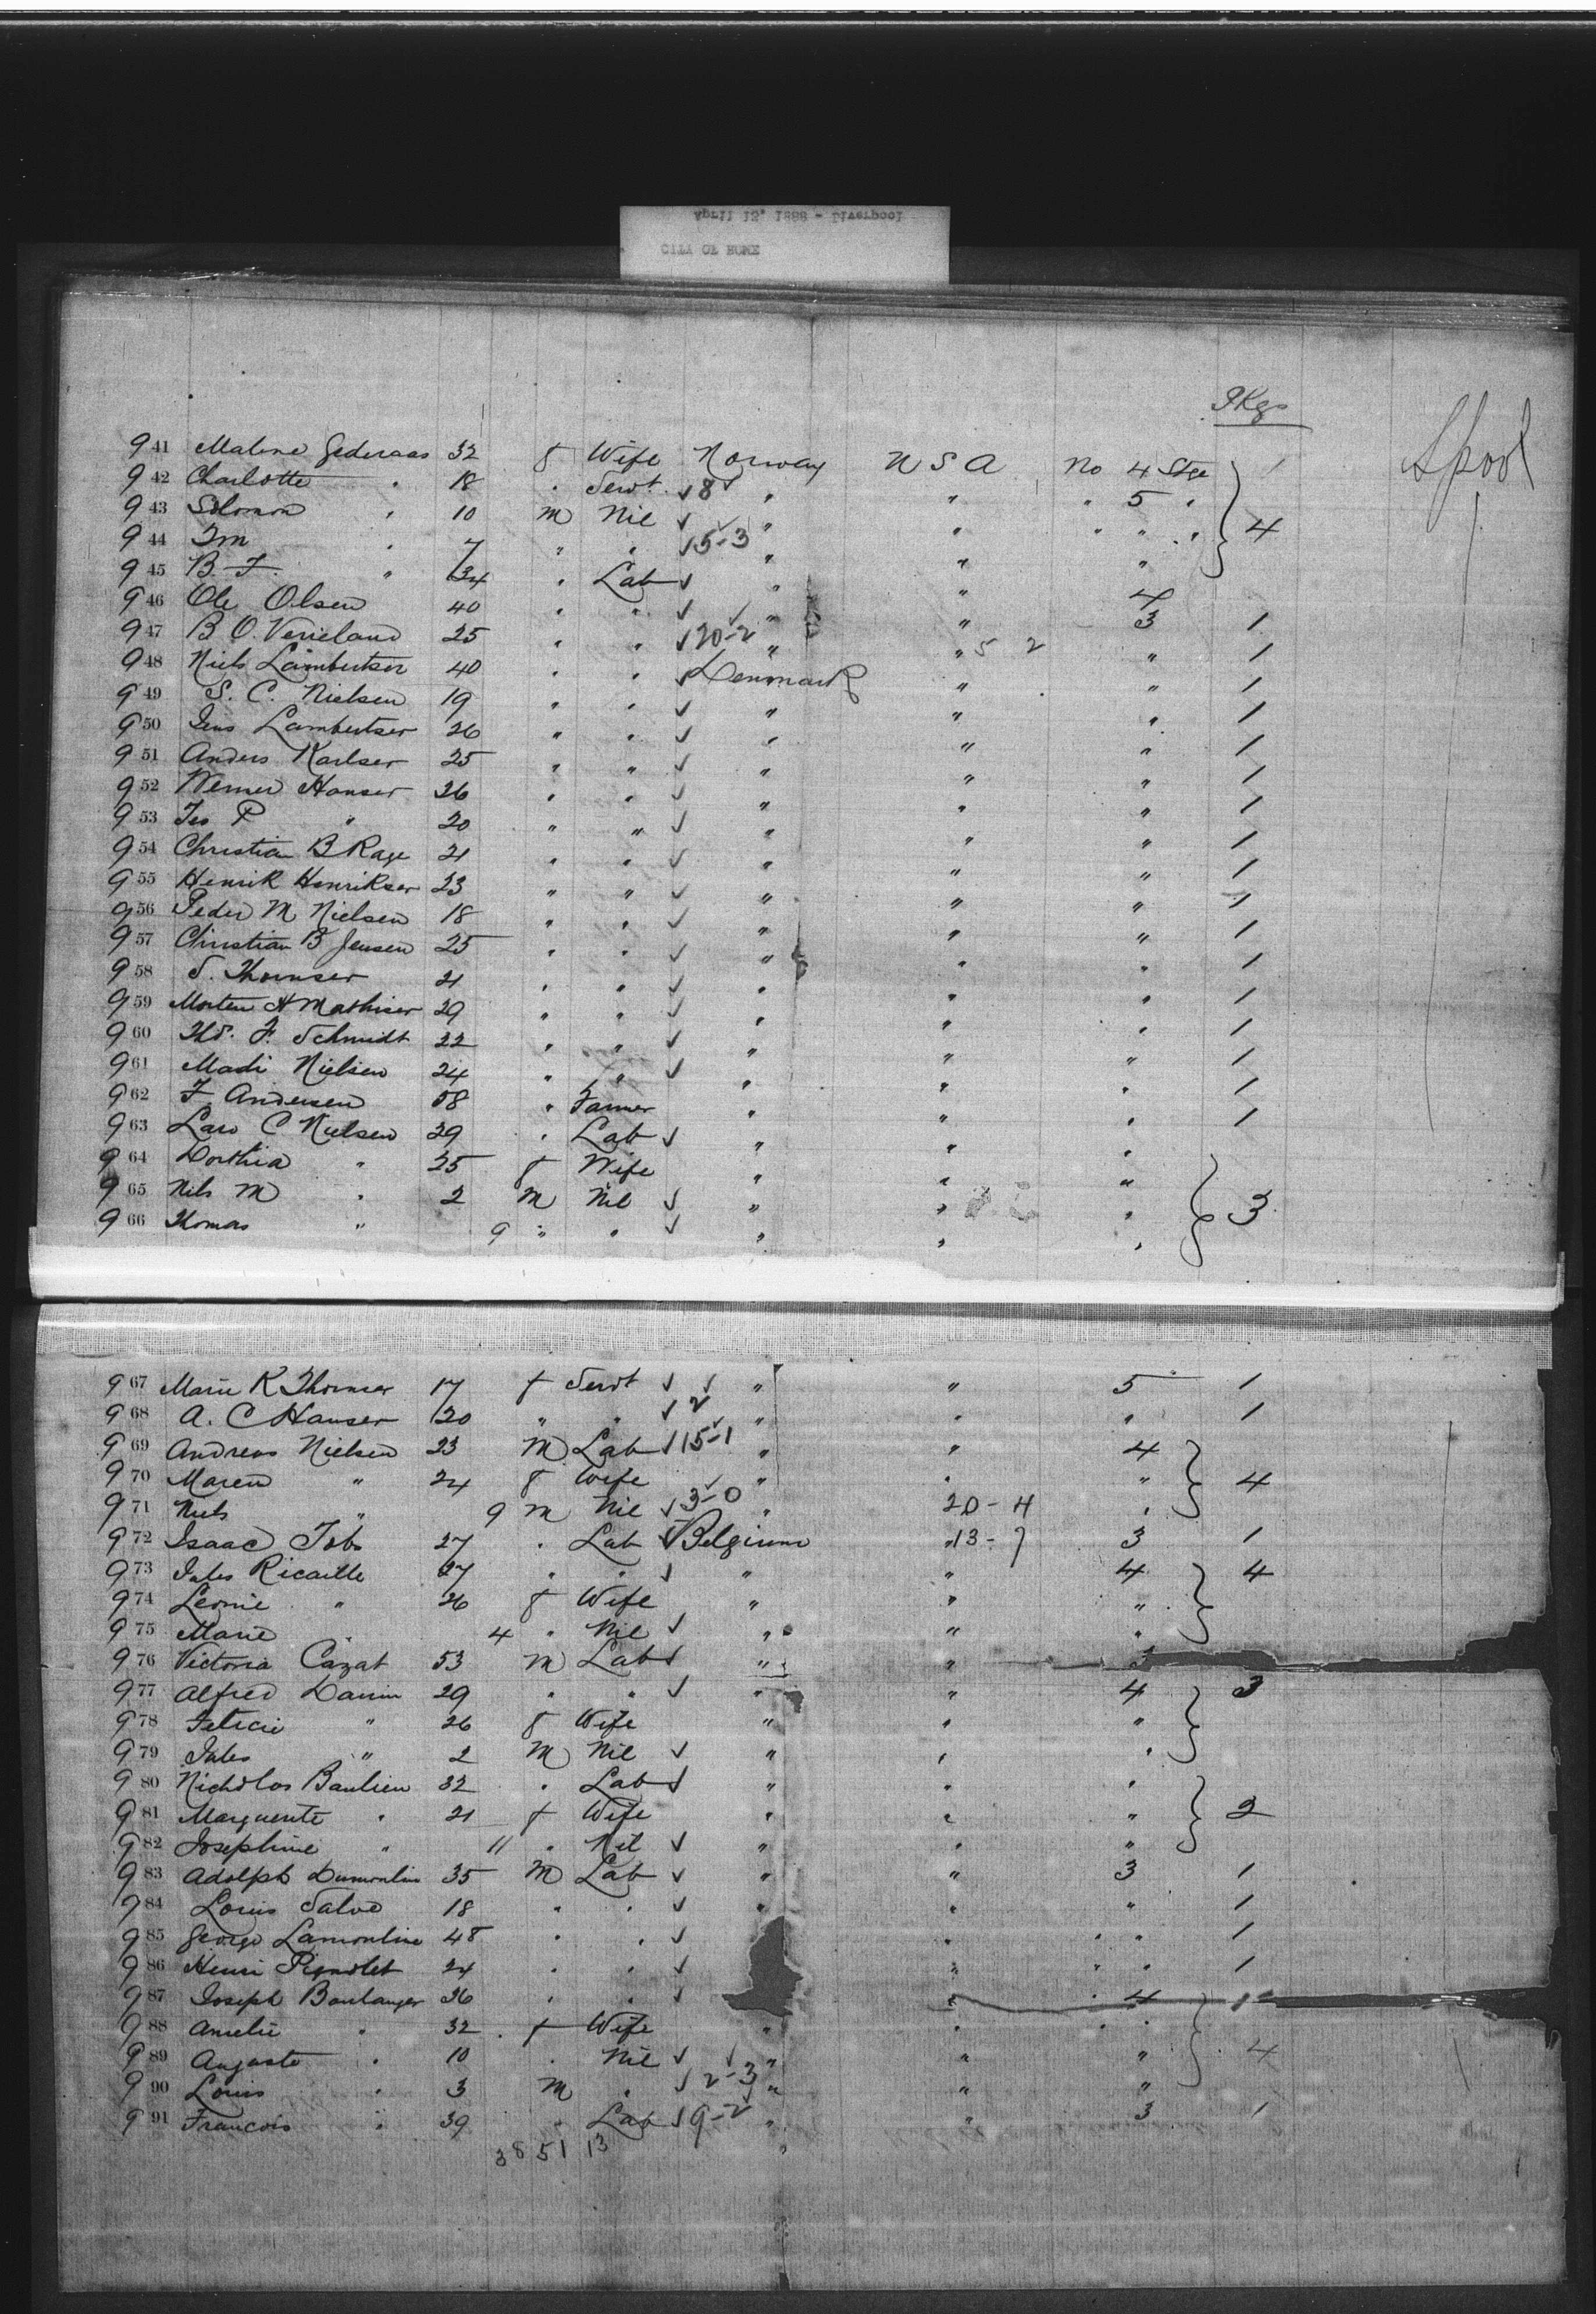 April 12, 1888 - Liverpool
CITY OF ROME
Pkgs
941 Malene Gederaas 32 f Wife Norway U S A No 4 Stge 1 Lpool
942 Charlotte " 18 " Servt 8 " " " 5 "
943 Solomon " 10 m Nil " " " " " 4
944 Im " 7 " " 5-3 " " "
945 B. F. " 34 " Lab " " 4
946 Ole Olsen 40 " " " " 3 1
947 B O. 25 " " 20-2 " " 5 2 " 1
948 Niels Lambertsen 40 " " Denmark " " 1
949 S. C. Nielsen 19 " " " " " 1
950 Jens Lambertsen 26 " " " " " 1
951 Anders Karlsen 25 " " " " " 1
952 Werner Hansen 26 " " " " " 1
953 Jes P " 20 " " " " " 1
954 Christian B Rage 21 " " " " " 1
955 Henrik Henriksen 23 " " " " " 1
956 Peder M Nielsen 18 " " " " " 1
957 Christian B Jensen 25 " " " " " 1
958 S. 21 " " " " " 1
959 Morten H Mathisen 29 " " " " " 1
960 Ths. F. Schmidt 22 " " " " " 1
961 Madi Nielsen 24 " " " " " 1
962 F Andersen 58 " Farmer " " " 1
963 Lars C Nielsen 29 " Lab " " "
964 Dorthia " 25 f Wife " " "
965 Nils M " 2 m Nil " " " 3
966 Thomas " 9 " " " " "
967 Marie K 17 f Servt " " 5 1
968 A. C Hansen 20 " " 2 " " " 1
969 Andreas Nielsen 23 m Lab 15-1 " " 4
970 Maren " 24 f Wife " " " 4
971 Niels " 9 m Nil 3-0 " 20-4 "
972 Isaac Tobs 27 " Lab Belgium " 13-7 3 1
973 Jules Ricaille 27 " " " " 4 4
974 Leonie " 26 f Wife " " "
975 Marie " 4 " Nil " " "
976 Victoria Cazat 53 m Lab " " 3
977 Alfred 29 " " " " 4 3
978 Felicie " 26 f Wife " " "
979 Jules " 2 m Nil " " "
980 Nicholas Baulieu 32 " Lab " " "
981 Marguerite " 21 f Wife " " " 2
982 Josephine " 11 " Nil " " "
983 Adolph Dumoulin 35 m Lab " " 3 1
984 Louis Salvo 18 " " " " " 1
985 George Lamouline 48 " " " " " 1
986 Henri Pignolet 24 " " " " " 1
987 Joseph Boulanger 36 " " " " 4 1
988 Amelie " 32 f Wife " " "
989 Auguste " 10 " Nil " " " 4
990 Louis " 3 m " 2-3 " " "
991 Francois " 39 " Lab 9-2 " " 3 1
38 51 13